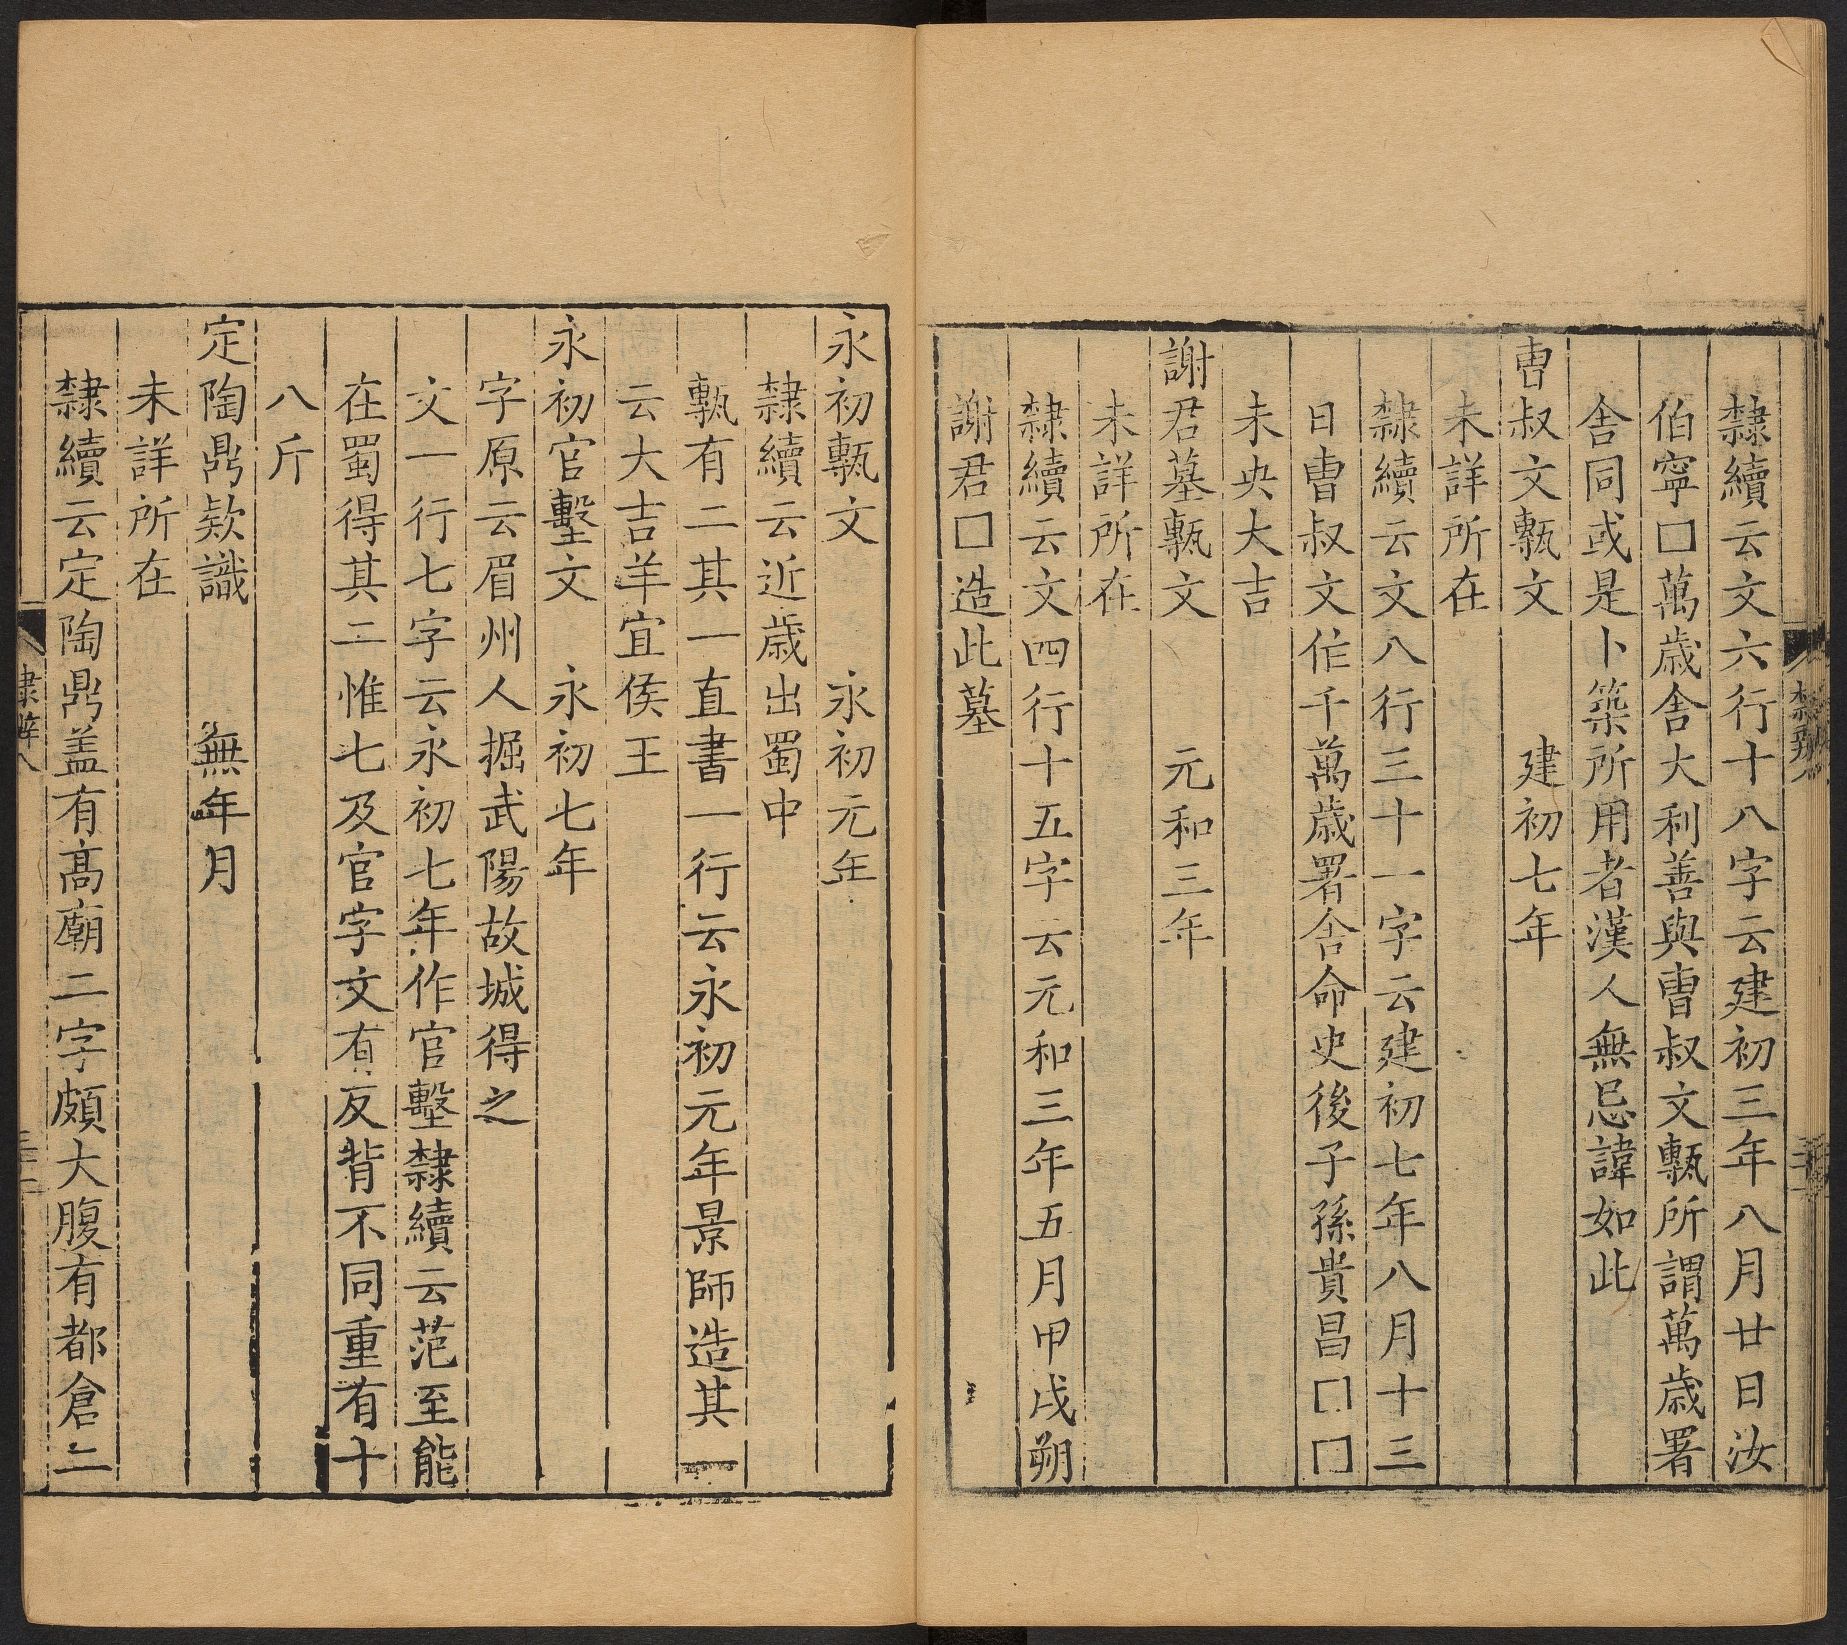 隸續云文六行十八字云建初三年八月廿日汝
伯寧囗萬歳舎大利善與曺叔文甎所謂萬歳署
舎同或是卜築所用者漢人無忌諱如此
曺叔文甎文　建初七年
未詳所在
隸續云文八行三十一字云建初七年八月十三
日曺叔文作千萬歳署舎命史後子孫貴昌囗囗
未央大吉
謝君墓甎文　元和三年
未詳所在
隸續云文四行十五字云元和三年五月甲戌朔
謝君囗造此墓
永初甎文　永初元年
隸續云近歳出蜀中
甎有二其一直書一行云永初元年景師造其一
云大吉羊宜侯王
永初官墼文　永初七年
字原云眉州人掘武陽故城得之
文一行七字云永初七年作官墼隸續云范至能
在蜀得其二惟七及官字文有反背不同重有十
八斤
定陶鼎欵識　無年月
未詳所在
隸續云定陶鼎盖有髙廟二字頗大腹有都倉二